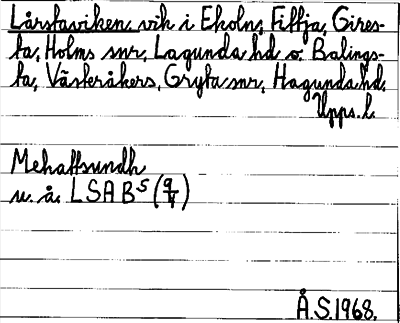 Lårstaviken, vik i Ekoln, Fittja, Gires-
ta, Holms snr, Lagunda hd o. Balings-
ta, Västeråkers, Gryta snr, Hagunda hd.
Upps. l.
u. å. LSA B⁵ (9/V)
Å.S. 1968.